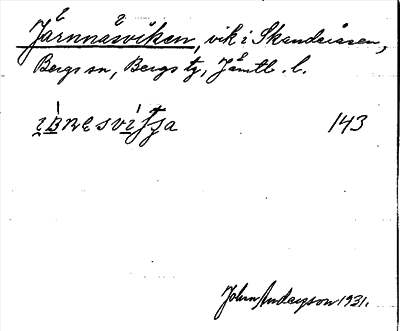 Järnnäsviken, vik i Skanderåsen,
Bergs sn, Bergs tg, Jämtl. l.
143
John Anderzson 1931.